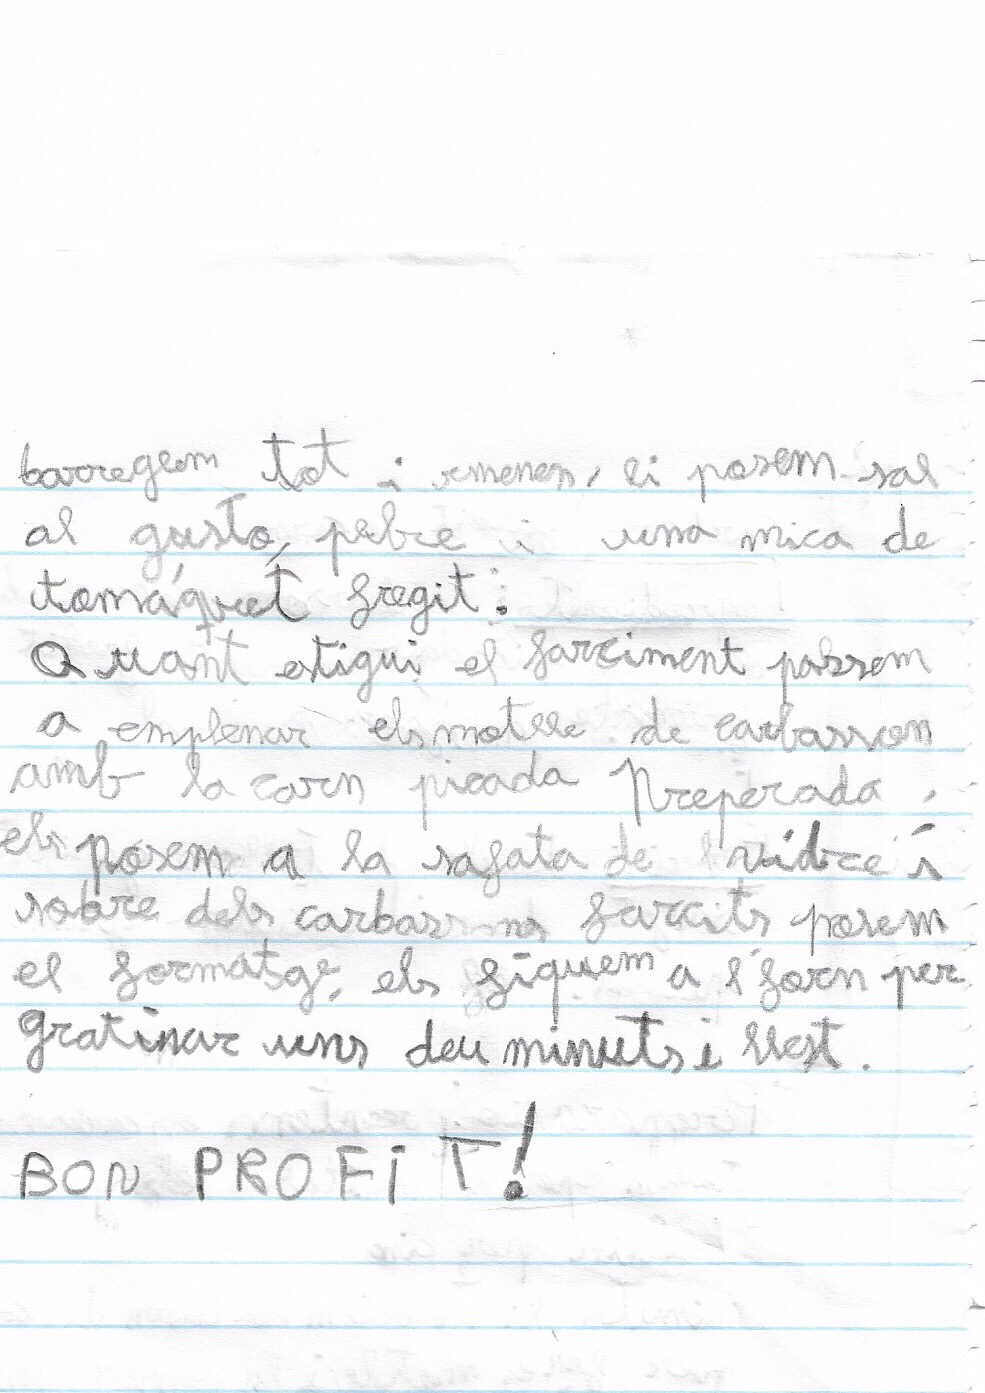 barregem tot i remenen, li posem sal
al gusto, pebre i una mica de
tomáquet fregit.
Quant estigui el farciment passem
a emplenar els motlle de carbasson
amb la carn picada Preperada,
els posem a la safata de vidre i
sobre dels carbassons farcits posem
el formatge, els fiquem a l'forn per
gratinar uns deu minuts i llest.
BON PROFIT!